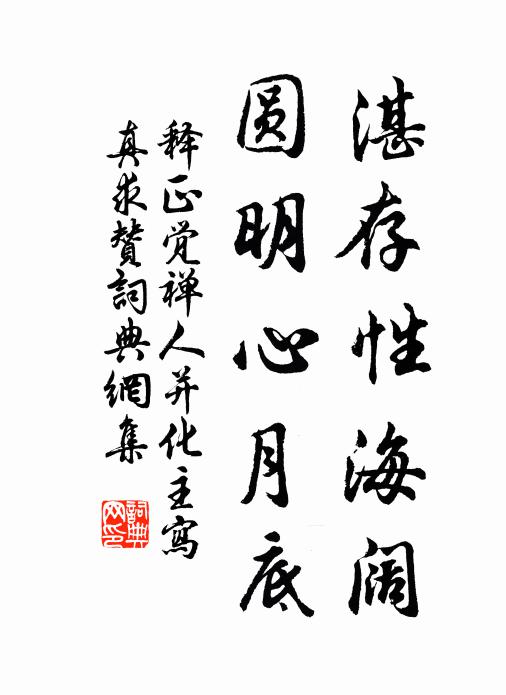 湛存性海阔
圆明心月底
释正觉禅人并化主寫
真求赞詞典網集
詞典网印